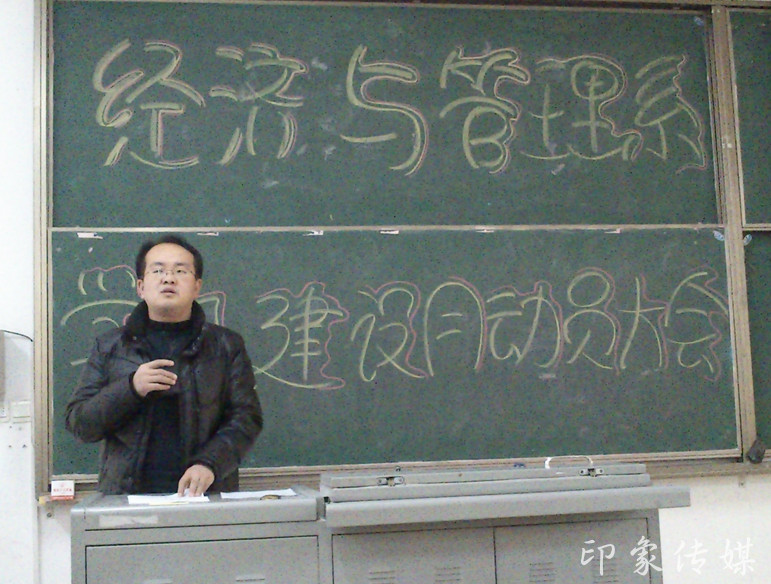 经济与管理系
学风建设月动员大会
印象传媒